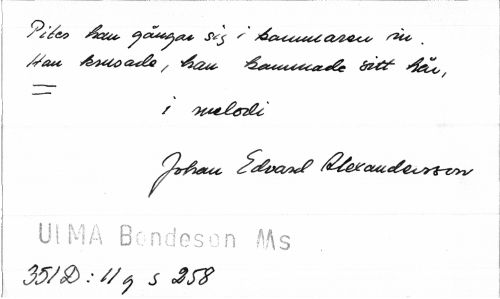 Piltes han gångar sig i kammaren in.
Han krusade, han kammade sitt hår,
=
i melodi
Johan Edvard Alexandersson
ULMA Bondeson Ms
351D : 11 q s 258